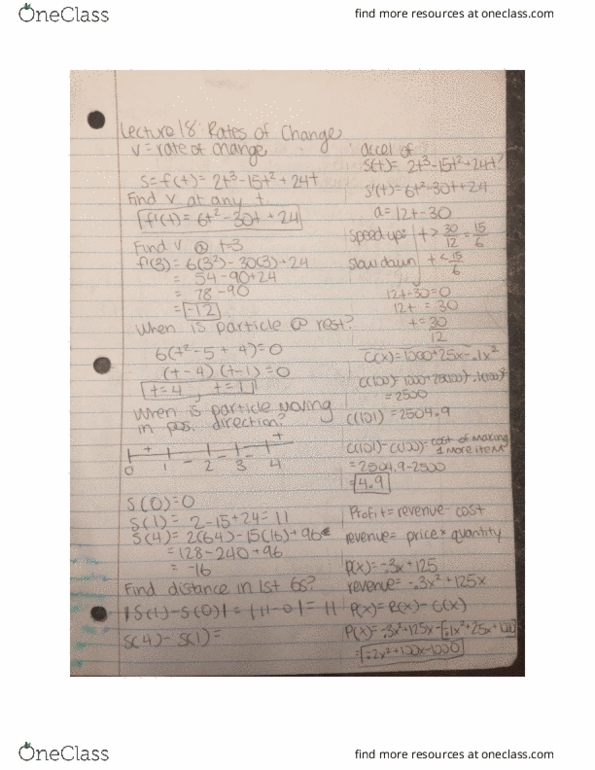 OneClass
find more resources at oneclass.com
Lecture 18: Rates of Change
v = rate of change
s = f(t) = 2t³ - 15t² + 24t
Find v at any t.
f'(t) = 6t² - 30t + 24
Find v @ t=3
f'(3) = 6(3²) - 30(3) + 24
= 54 - 90 + 24
= 78 - 90
= -12
When is particle @ rest?
6(t² - 5 + 4) = 0
(t - 4)(t - 1) = 0
t = 4, t = 1
When is particle moving
in pos. direction?
+ - - - +
0 1 2 3 4
s(0) = 0
s(1) = 2 - 15 + 24 = 11
s(4) = 2(64) - 15(16) + 96
= 128 - 240 + 96
= -16
Find distance in 1st 6s?
|s(1) - s(0)| = |11 - 0| = 11
s(4) - s(1) =
accel of
s(t) = 2t³ - 15t² + 24t
s'(t) = 6t² - 30t + 24
a = 12t - 30
speed up: t > 30/12 = 15/6
slow down t < 15/6
12t - 30 = 0
12t = 30
t = 30/12
C(x) = 1000 + 25x - .1x²
= 2500
C(101) = 2504.9
C(101) - C(100) = cost of making
1 more item
= 2504.9 - 2500
= 4.9
Profit = revenue - cost
revenue = price × quantity
p(x) = -.3x + 125
revenue = -.3x² + 125x
P(x) = R(x) - C(x)
P(x) = -.3x² + 125x - [-.1x² + 25x + 1000]
= -.2x² + 100x - 1000
OneClass
find more resources at oneclass.com